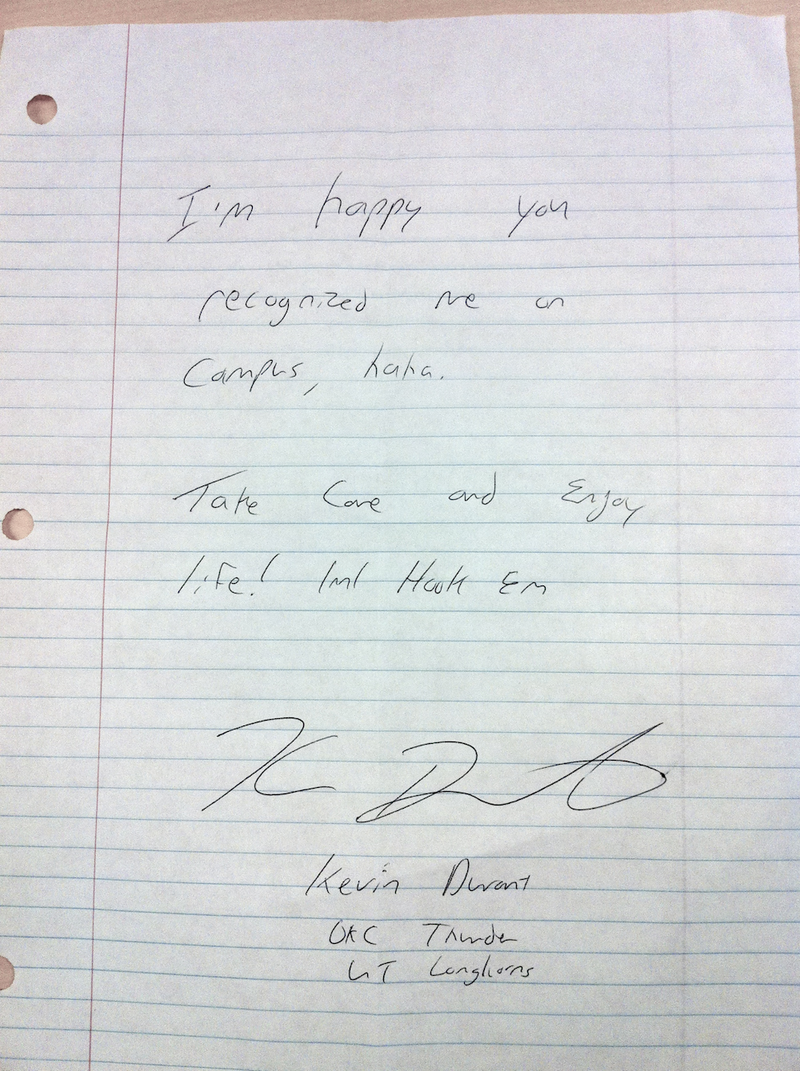 I'm happy you
recognized me on
Campus, haha.
Take Care and Enjoy
life! Hook Em
Kevin Durant
OKC Thunder
UT Longhorns